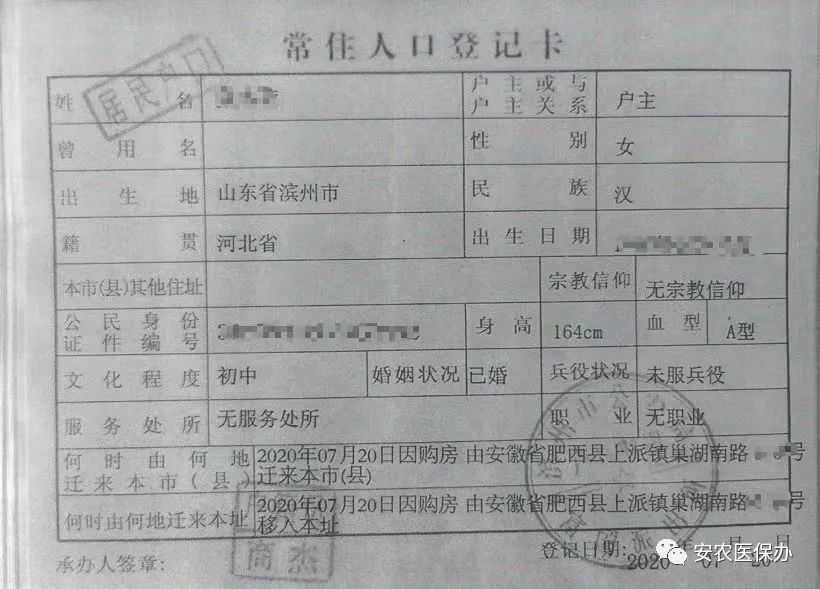 常住人口登记卡
居民户口
姓名 户主或与户主关系 户主
曾用名 性别 女
出生地 山东省滨州市 民族 汉
籍贯 河北省 出生日期
本市(县)其他住址 宗教信仰 无宗教信仰
公民身份证件编号 身高 164cm 血型 A型
文化程度 初中 婚姻状况 已婚 兵役状况 未服兵役
服务处所 无服务处所 职业 无职业
何时由何地迁来本市(县) 2020年07月20日因购房 由安徽省肥西县上派镇巢湖南路 号
迁来本市(县)
何时由何地迁来本址 2020年07月20日因购房 由安徽省肥西县上派镇巢湖南路 号
移入本址
承办人签章: 登记日期: 2020 年 07 月 20 日
安农医保办